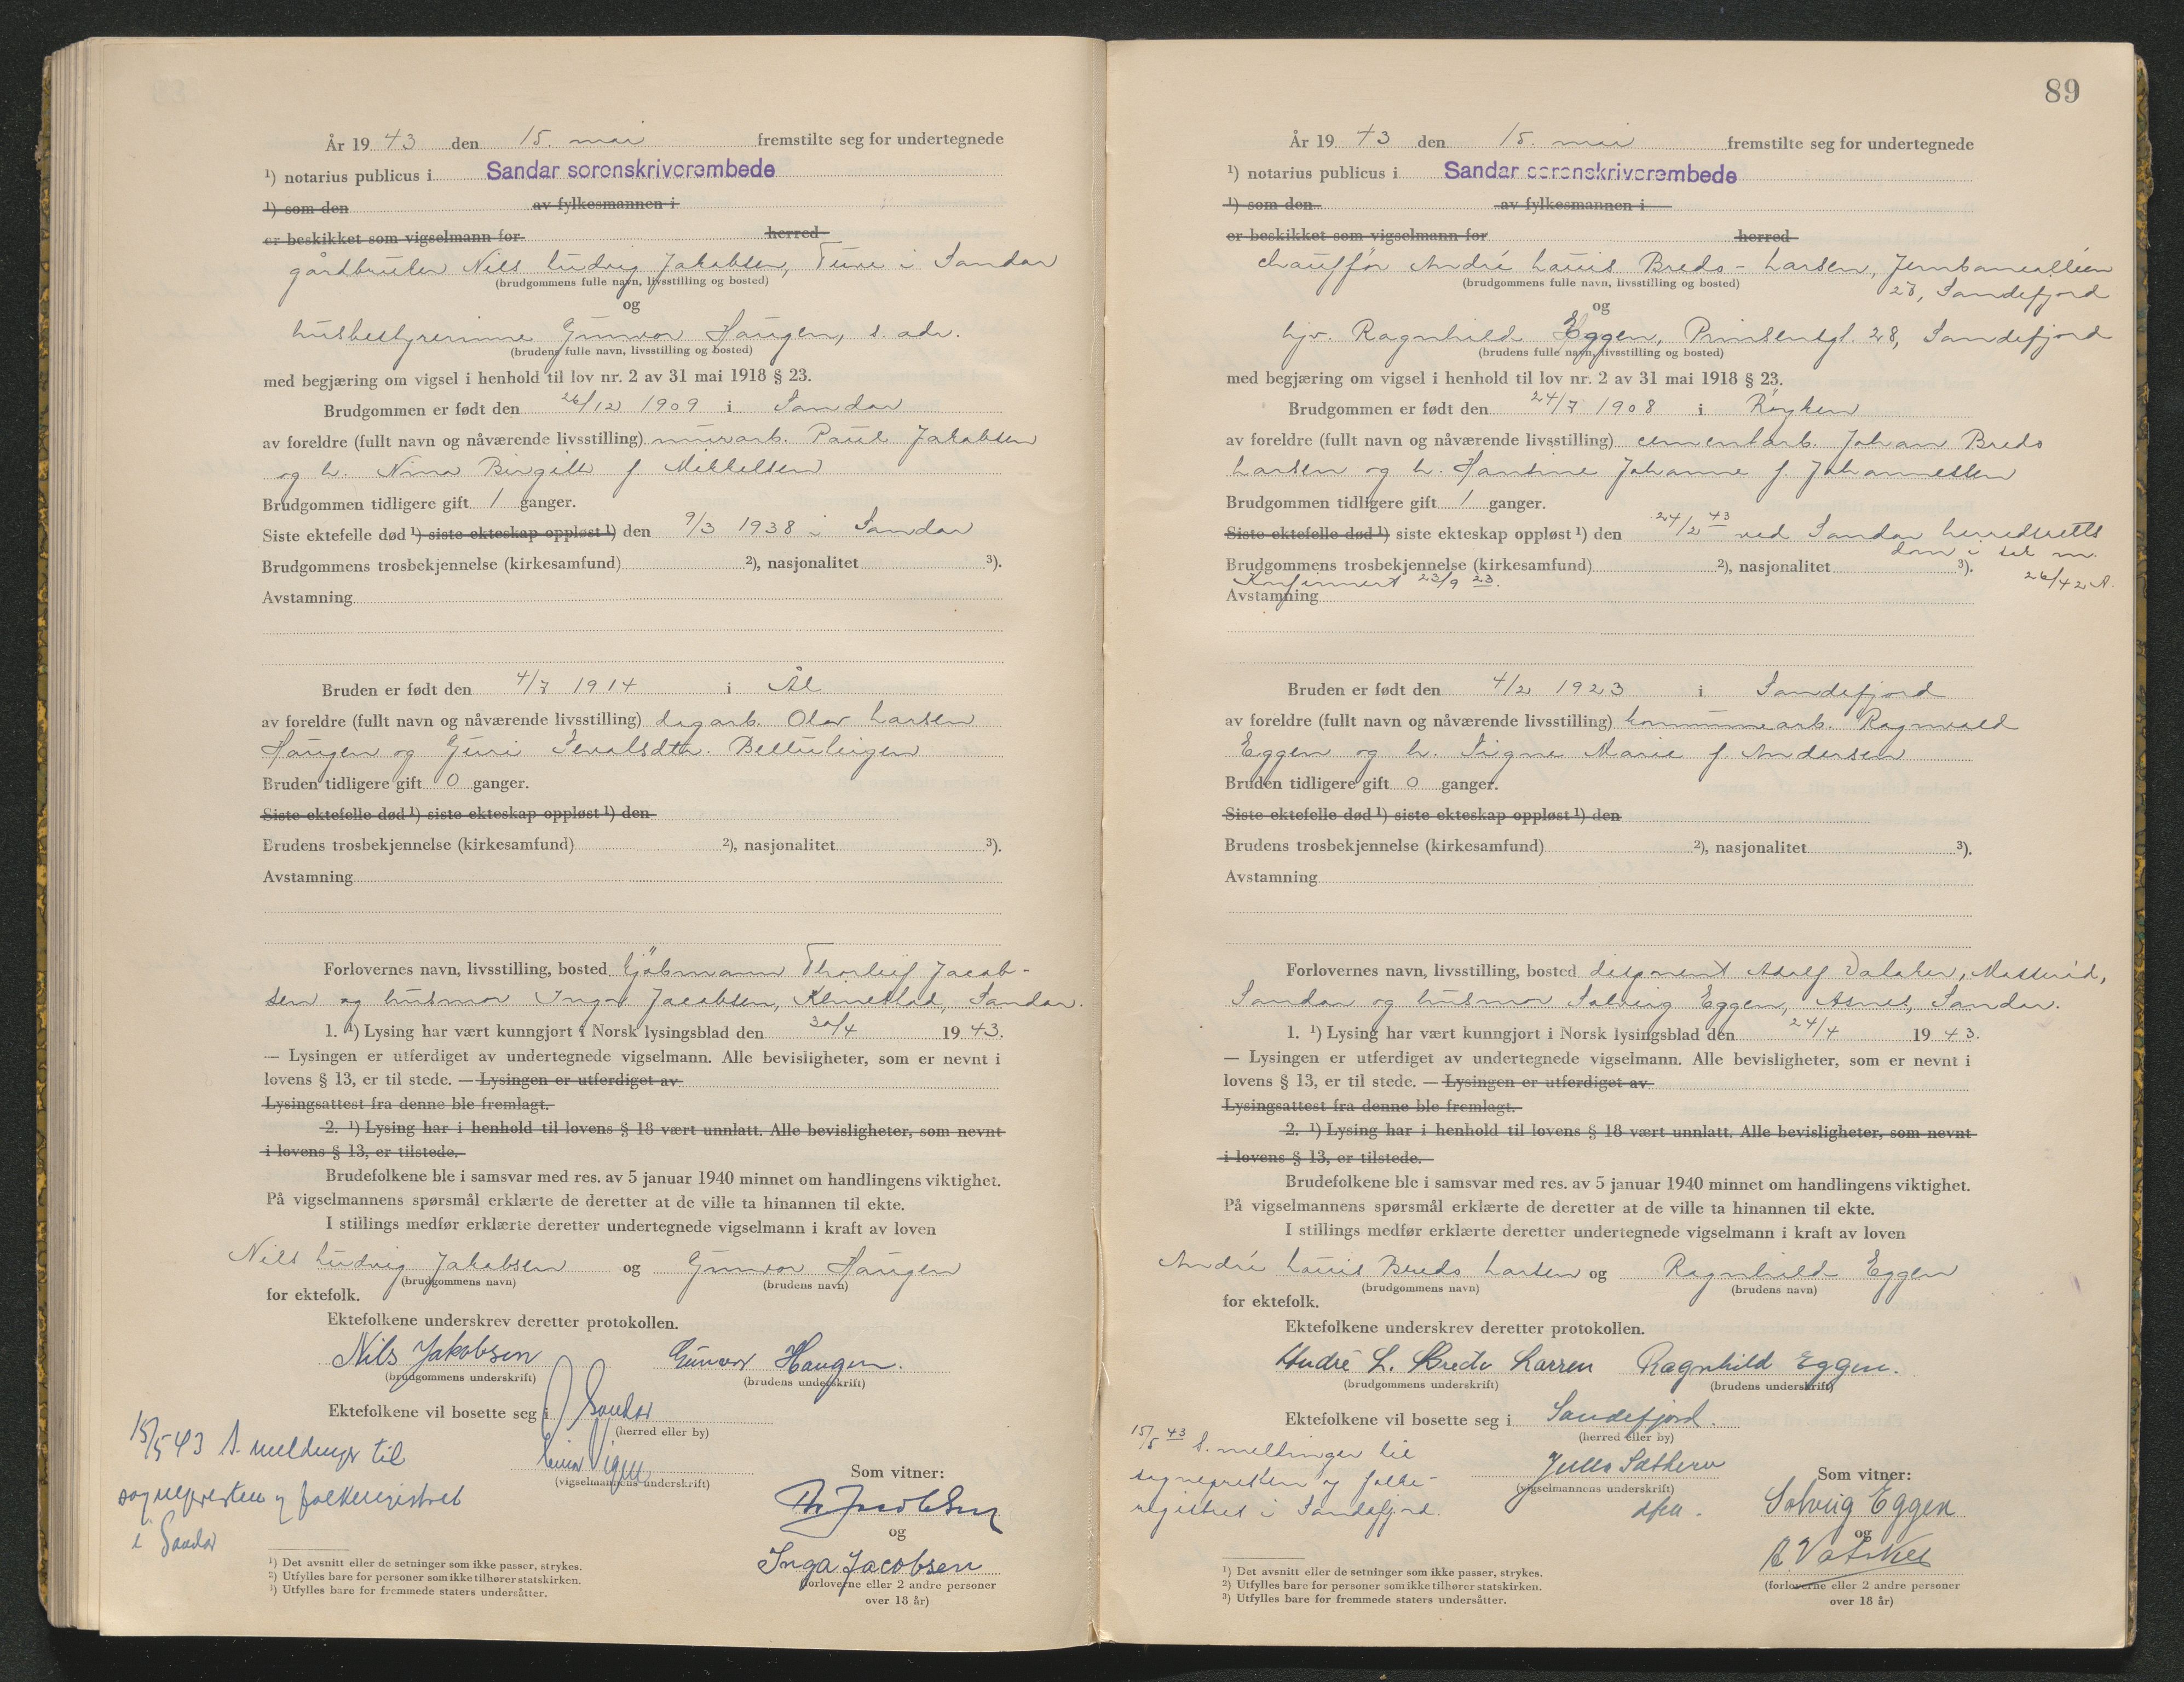 År 19 43 den 15. mai fremstilte seg for undertegnede
¹) notarius publicus i Sandar sorenskriverembede
¹) som den av fylkesmannen i
er beskikket som vigselmann for herred
gårdbruker Nils Ludvig Jakobsen, Ture i Sandar
(brudgommens fulle navn, livsstilling og bosted)
og
husbestyrerinne Gunvor Haugen, s. adr.
(brudens fulle navn, livsstilling og bosted)
med begjæring om vigsel i henhold til lov nr. 2 av 31 mai 1918 § 23.
Brudgommen er født den 26/12 1909 i Sandar
av foreldre (fullt navn og nåværende livsstilling) murarb. Paul Jakobsen
og h. Nina Birgitte f. Mikkelsen
Brudgommen tidligere gift 1 ganger.
Siste ektefelle død ¹) siste ekteskap oppløst ¹) den 9/3 1938 i Sandar
Brudgommens trosbekjennelse (kirkesamfund) ²), nasjonalitet ³).
Avstamning
Bruden er født den 4/7 1914 i Ål
av foreldre (fullt navn og nåværende livsstilling) dagarb. Olav Larsen
Haugen og Guri Sevalsdtr.
Bruden tidligere gift 0 ganger.
Siste ektefelle død ¹) siste ekteskap oppløst ¹) den
Brudens trosbekjennelse (kirkesamfund) ²), nasjonalitet ³).
Avstamning
Forlovernes navn, livsstilling, bosted kjøbmann Thorleif Jacob-
sen og husmor Inga Jacobsen, Klinestad, Sandar.
1. ¹) Lysing har vært kunngjort i Norsk lysingsblad den 30/4 19 43.
— Lysingen er utferdiget av undertegnede vigselmann. Alle bevisligheter, som er nevnt i
lovens § 13, er til stede. — Lysingen er utferdiget av
Lysingsattest fra denne ble fremlagt.
2. ¹) Lysing har i henhold til lovens § 18 vært unnlatt. Alle bevisligheter, som nevnt
i lovens § 13, er tilstede.
Brudefolkene ble i samsvar med res. av 5 januar 1940 minnet om handlingens viktighet.
På vigselmannens spørsmål erklærte de deretter at de ville ta hinannen til ekte.
I stillings medfør erklærte deretter undertegnede vigselmann i kraft av loven
Nils Ludvig Jakobsen og Gunvor Haugen
(brudgommens navn) (brudens navn)
for ektefolk.
Ektefolkene underskrev deretter protokollen.
Nils Jakobsen Gunvor Haugen.
(brudgommens underskrift) (brudens underskrift)
Ektefolkene vil bosette seg i Sandar
(herred eller by)
15/5 43 S. meldinger til
sognepresten og folkeregistret
i Sandar
(vigselmannens underskrift)
Som vitner:
Th Jacobsen
og
Inga Jacobsen
(forloverne eller 2 andre personer
over 18 år)
¹) Det avsnitt eller de setninger som ikke passer, strykes.
²) Utfylles bare for personer som ikke tilhører statskirken.
³) Utfylles bare for fremmede staters undersåtter.
89
År 19 43 den 15. mai fremstilte seg for undertegnede
¹) notarius publicus i Sandar sorenskriverembede
¹) som den av fylkesmannen i
er beskikket som vigselmann for herred
chauffør André Louis Bredo-Larsen, Jernbanealléen
28, Sandefjord
(brudgommens fulle navn, livsstilling og bosted)
og
hjv. Ragnhild Eggen, Prinsensgt. 28, Sandefjord
(brudens fulle navn, livsstilling og bosted)
med begjæring om vigsel i henhold til lov nr. 2 av 31 mai 1918 § 23.
Brudgommen er født den 24/7 1908 i Røyken
av foreldre (fullt navn og nåværende livsstilling) cementarb. Johan Bredo
Larsen og h. Hansine Johanne f. Johannessen
Brudgommen tidligere gift 1 ganger.
Siste ektefelle død ¹) siste ekteskap oppløst ¹) den 24/2 43 ved Sandar herredsretts
dom i sak nr.
26/42 A.
Brudgommens trosbekjennelse (kirkesamfund) ²), nasjonalitet ³).
Konfirmert 23/9 23.
Avstamning
Bruden er født den 4/2 1923 i Sandefjord
av foreldre (fullt navn og nåværende livsstilling) kommunearb. Ragnvald
Eggen og h. Signe Marie f. Andersen
Bruden tidligere gift 0 ganger.
Siste ektefelle død ¹) siste ekteskap oppløst ¹) den
Brudens trosbekjennelse (kirkesamfund) ²), nasjonalitet ³).
Avstamning
Forlovernes navn, livsstilling, bosted disponent Adolf
Sandar og husmor Solveig Eggen, Asnes, Sandar.
1. ¹) Lysing har vært kunngjort i Norsk lysingsblad den 24/4 19 43.
— Lysingen er utferdiget av undertegnede vigselmann. Alle bevisligheter, som er nevnt i
lovens § 13, er til stede. — Lysingen er utferdiget av
Lysingsattest fra denne ble fremlagt.
2. ¹) Lysing har i henhold til lovens § 18 vært unnlatt. Alle bevisligheter, som nevnt
i lovens § 13, er tilstede.
Brudefolkene ble i samsvar med res. av 5 januar 1940 minnet om handlingens viktighet.
På vigselmannens spørsmål erklærte de deretter at de ville ta hinannen til ekte.
I stillings medfør erklærte deretter undertegnede vigselmann i kraft av loven
André Louis Bredo Larsen og Ragnhild Eggen
(brudgommens navn) (brudens navn)
for ektefolk.
Ektefolkene underskrev deretter protokollen.
André L. Bredo Larsen Ragnhild Eggen.
(brudgommens underskrift) (brudens underskrift)
Ektefolkene vil bosette seg i Sandefjord.
(herred eller by)
15/5 43 S. meldinger til
sognepresten og folke-
registret i Sandefjord.
(vigselmannens underskrift)
Som vitner:
Solveig Eggen
og
(forloverne eller 2 andre personer
over 18 år)
¹) Det avsnitt eller de setninger som ikke passer, strykes.
²) Utfylles bare for personer som ikke tilhører statskirken.
³) Utfylles bare for fremmede staters undersåtter.